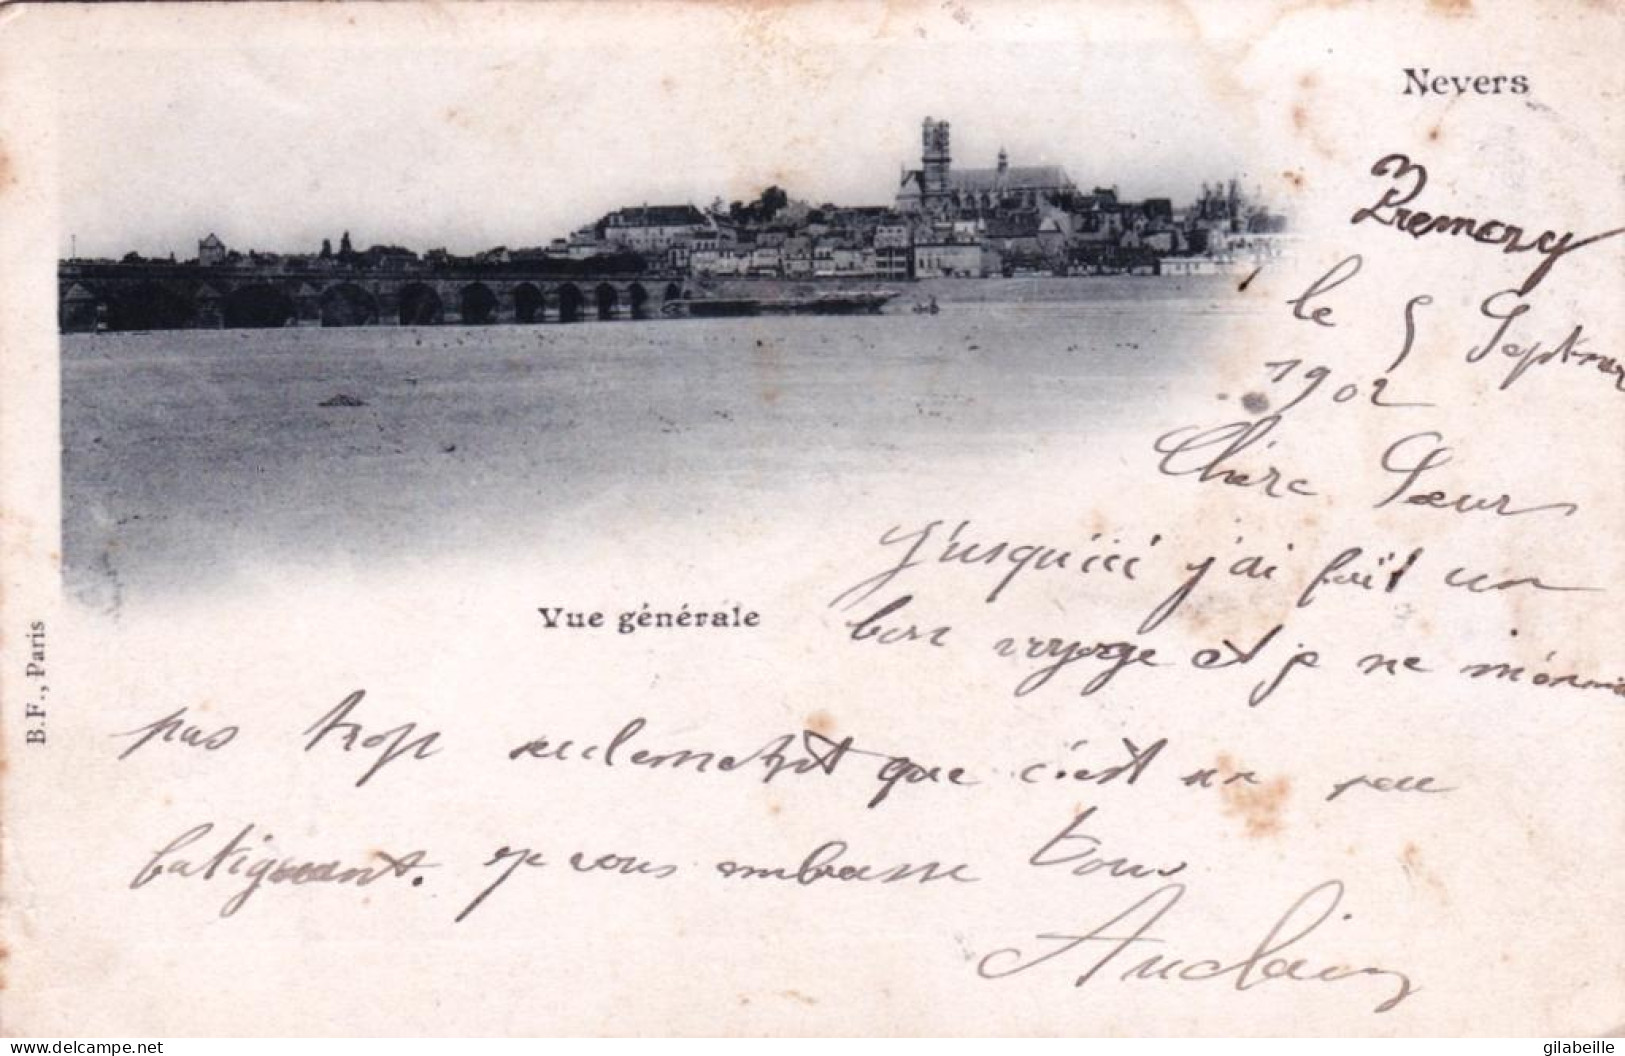 Nevers
Premery
le 5 Septembre
1902
Chère Sœur
Jusqu'ici j'ai fait un
bon voyage et je ne m'ennuie
Vue générale
pas trop seulement que c'est un peu
fatiguant. Je vous embrasse tous
Auclair
B.F., Paris
www.delcampe.net
gilabeille